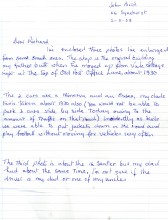 John Bird
Dear Richard
ive enclosed three photos ive enlarged
from some small ones. The shop is the original building
my father built when he moved up from Uncle Georges
sign at the top of Old Fort Gifford Lane, about 1930
The 2 cars are a Morris and an Essex, my dads
taxis taken about 1930 also (you would not be able to
park 2 cars side by side today owing to the
amount of traffic on that road) incidentally as kids
we were able to put jackets down in the road and
play football without moving for vehicles very often.
The third photo is about the 14 seater bus my dad
had about the same time, im not sure if the
driver is my dad or one of my uncles